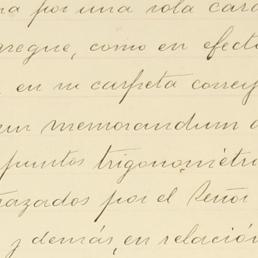 na por una sola cara
aregue, como en efecto
en su carpeta corres
un memorandum d
puntos trigonométri
trazados por el Señor
y demás, en relación